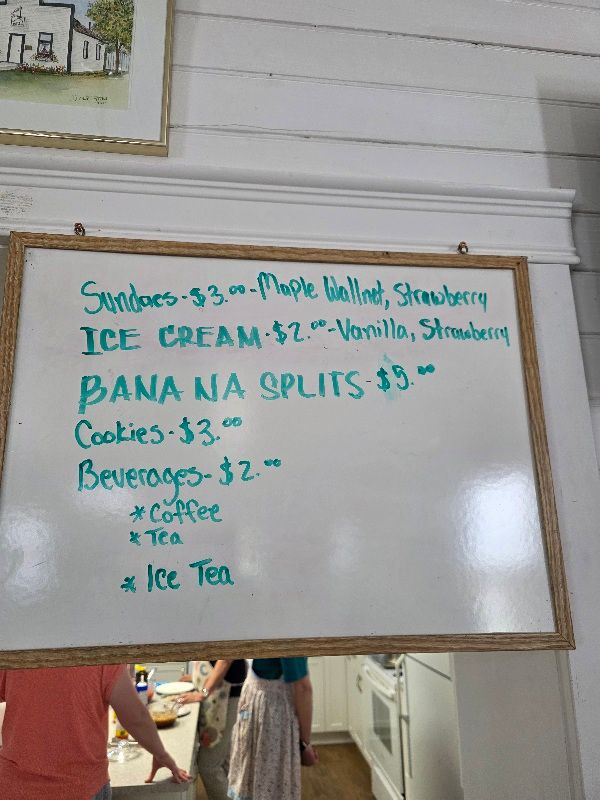 Sundaes - $3.00 - Maple Wallnut, Strawberry
ICE CREAM - $2.00 - Vanilla, Strawberry
BANANA SPLITS - $5.00
Cookies - $3.00
Beverages - $2.00
* Coffee
* Tea
* Ice Tea